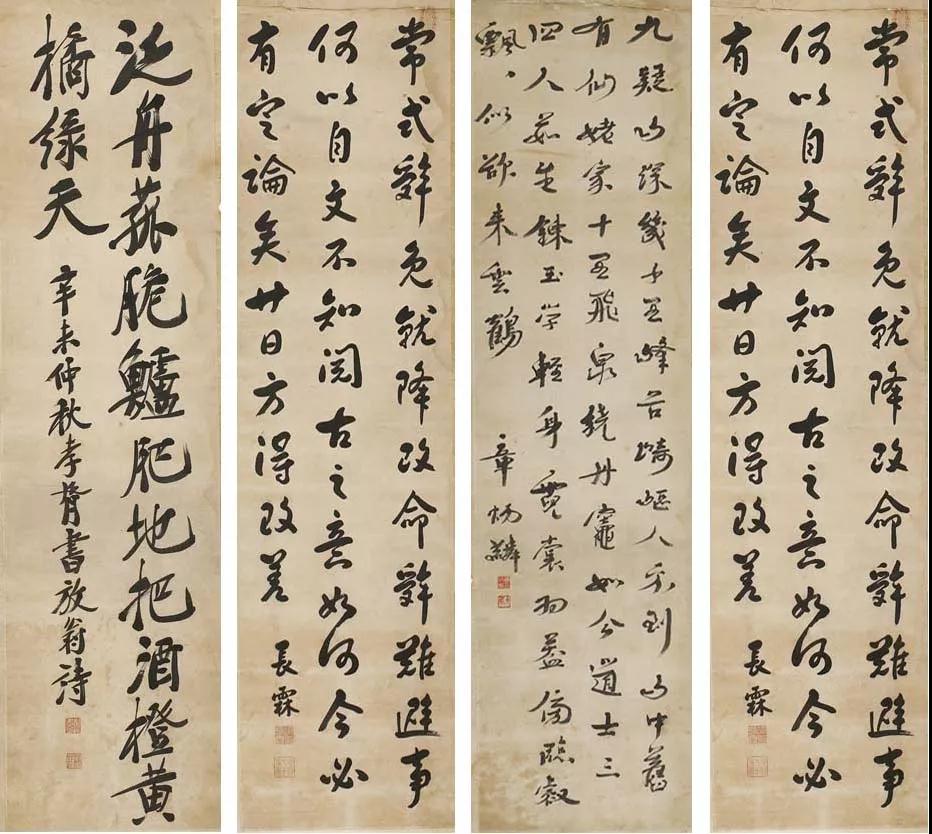 常式辭免就降改命辭難避事
何以自文不知閲古之意如何今必
有定論矣廿日方得改差
長霖
九疑山深幾千里峰谷崎嶇人不到山中舊
有仙姥家十里飛泉繞丹竈如今道士三
四人茹芝鍊玉學輕身霓裳羽蓋傍臨壑
飄〻似欲來雲鶴
章炳麟
常式辭免就降改命辭難避事
何以自文不知閲古之意如何今必
有定論矣廿日方得改差
長霖
泛舟菰脆鱸肥地把酒橙黃
橘緑天
辛未仲秋孝胥書放翁詩